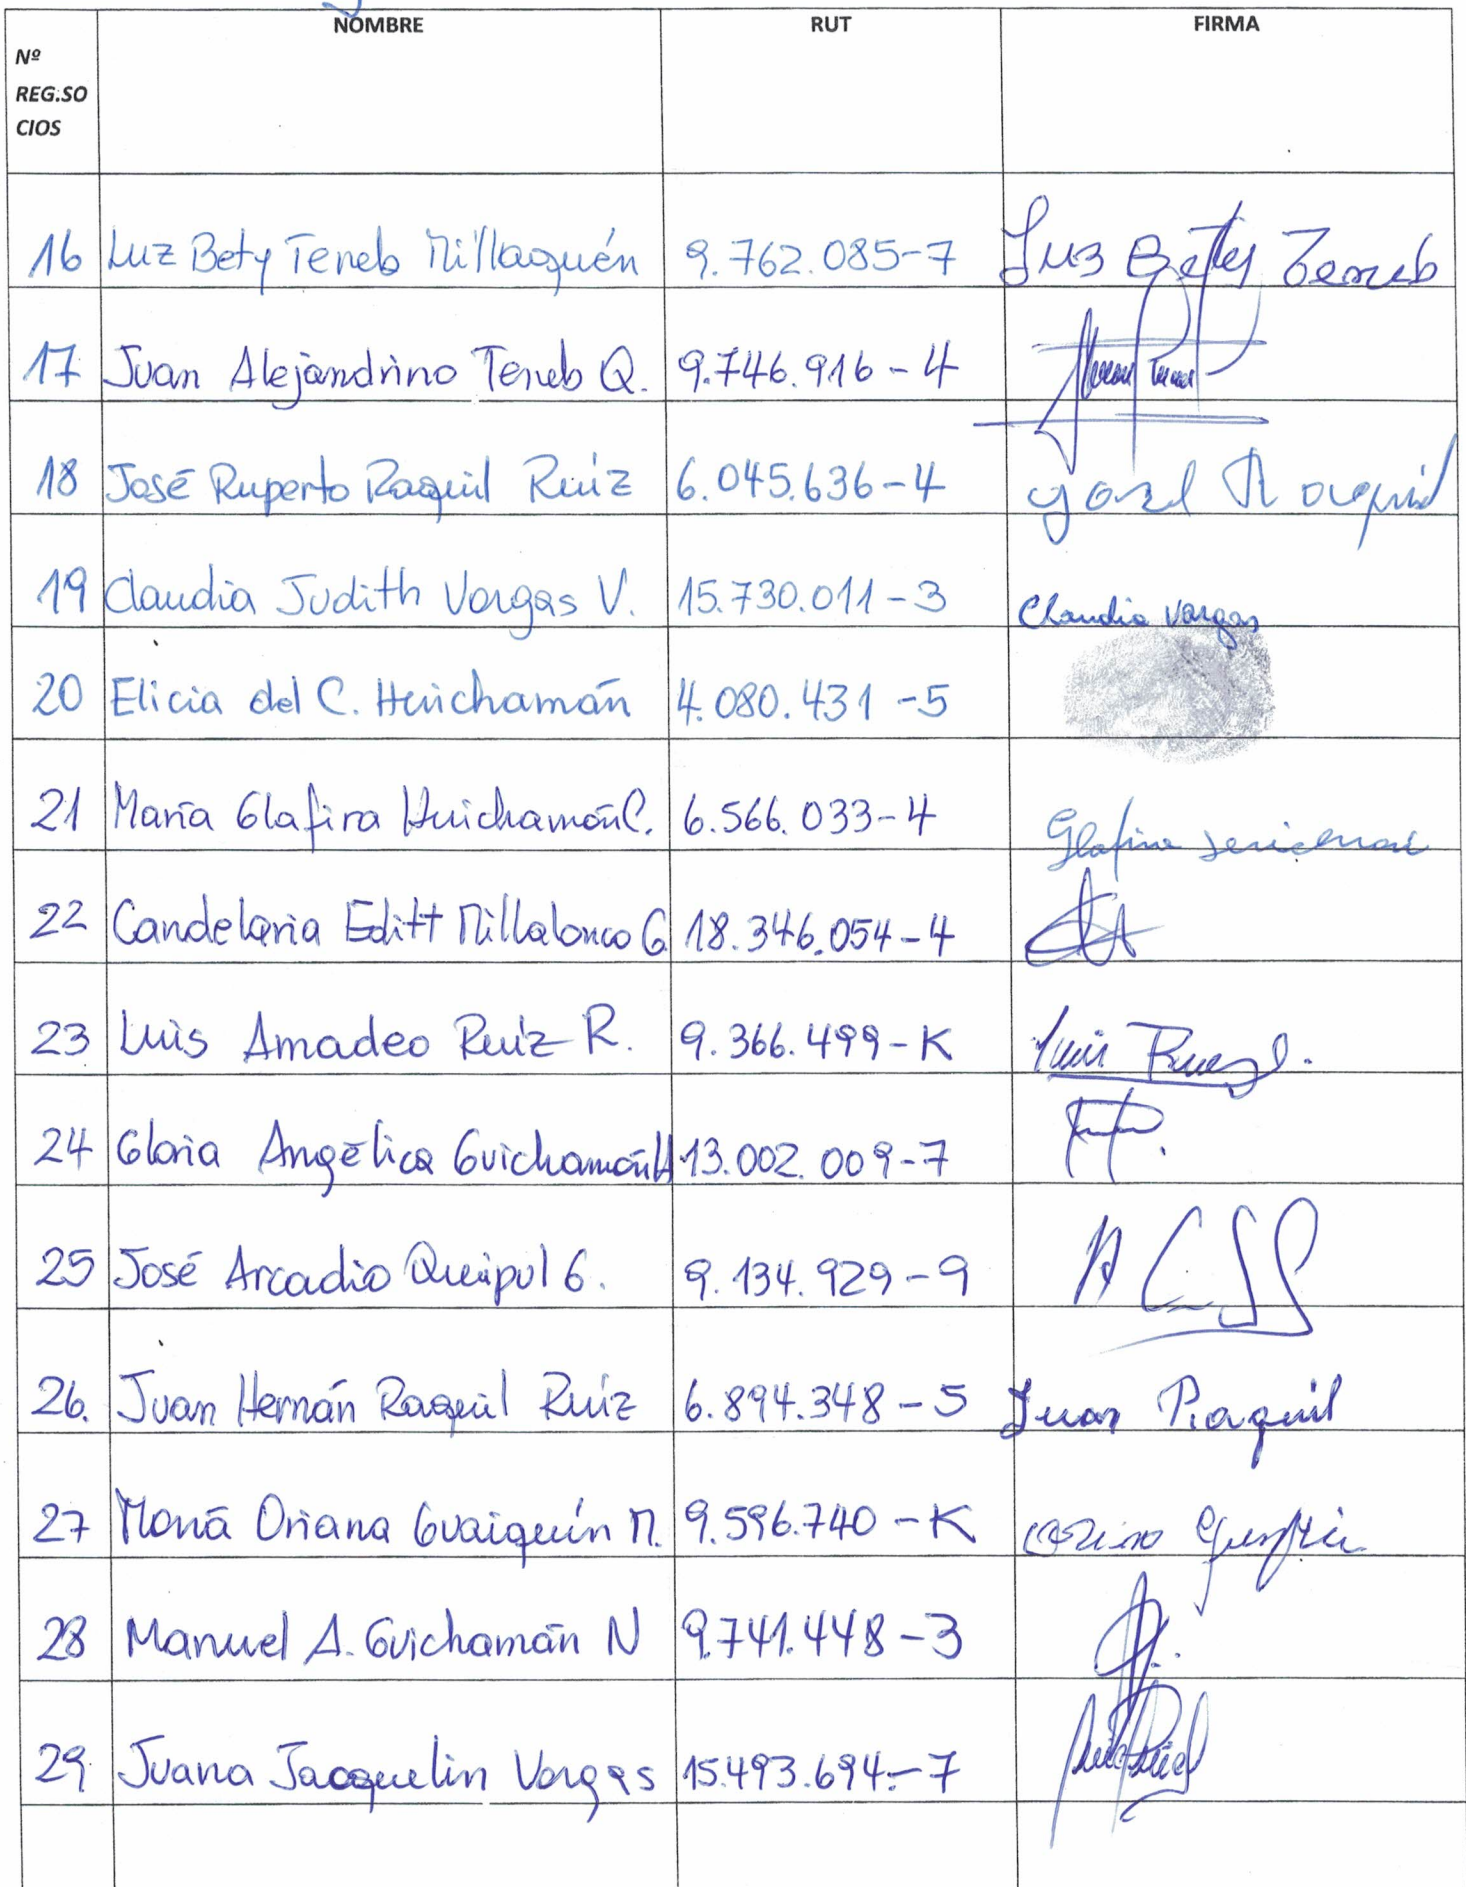 NOMBRE RUT FIRMA
Nº
REG.SO
CIOS
16 Luz Bety Teneb Millaquén 9.762.085-7 Luz Bety Teneb
17 Juan Alejandrino Teneb Q. 9.746.916-4
18 José Ruperto Raquil Ruiz 6.045.636-4 Raquil
19 Claudia Judith Vargas V. 15.730.011-3 Claudia Vargas
20 Elicia del C. Huichamán 4.080.431-5
21 María Glafira Huichamán C. 6.566.033-4 Glafira
22 Candelaria Editt Millalonco G 18.346.054-4
23 Luis Amadeo Ruiz R. 9.366.499-K Luis
24 Gloria Angélica Guichamán H 13.002.009-7
25 José Arcadio Queipul G. 9.134.929-9
26. Juan Hernán Raquil Ruíz 6.894.348-5 Juan Raquil
27 María Oriana Guaiquín M. 9.596.740-K
28 Manuel A. Guichamán N 9.741.448-3
29 Juana Jacquelin Vargas 15.493.694-7